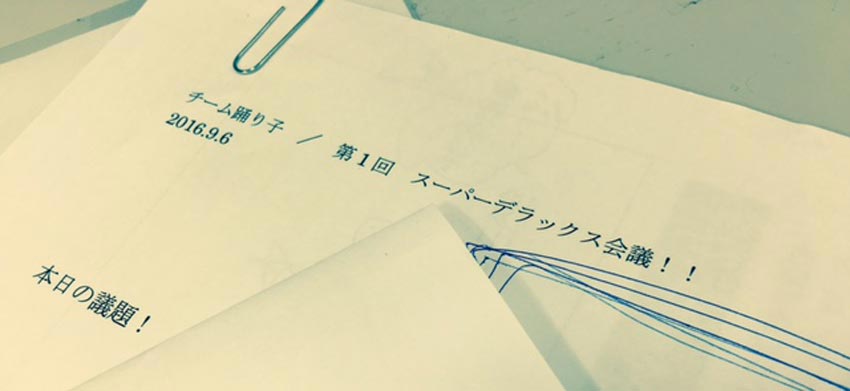 チーム踊り子 / 第1回 スーパーデラックス会議!!
2016.9.6
本日の議題!